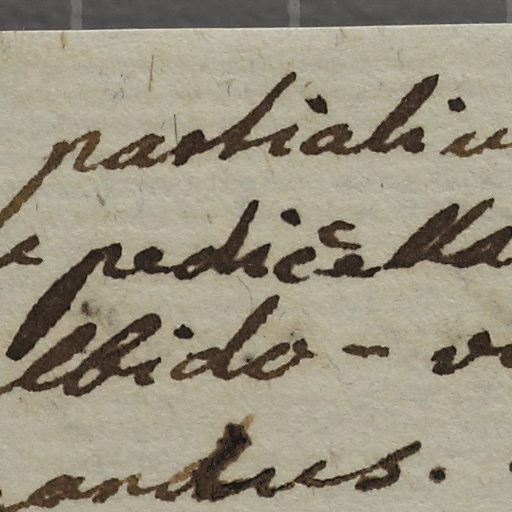 partialiu
e pedicella
lbido - vi
andus.